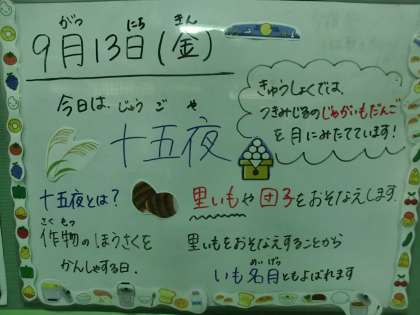 がつ にち きん
9月13日(金)
きゅうしょくでは、
つきみじるのじゃがいもだんご
を月にみたてています!
今日は、じゅう ご や
十五夜
十五夜とは?
さくもつ
作物のほうさくを
かんしゃする日.
里いもや団子をおそなえします.
里いもをおそなえすることから
めいげつ
いも名月ともよばれます